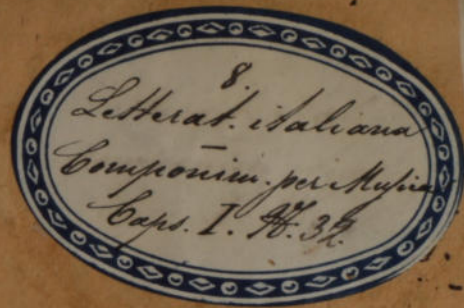 8.
Letterat. italiana
—
Componim. per Musica
Caps. I. N. 32.